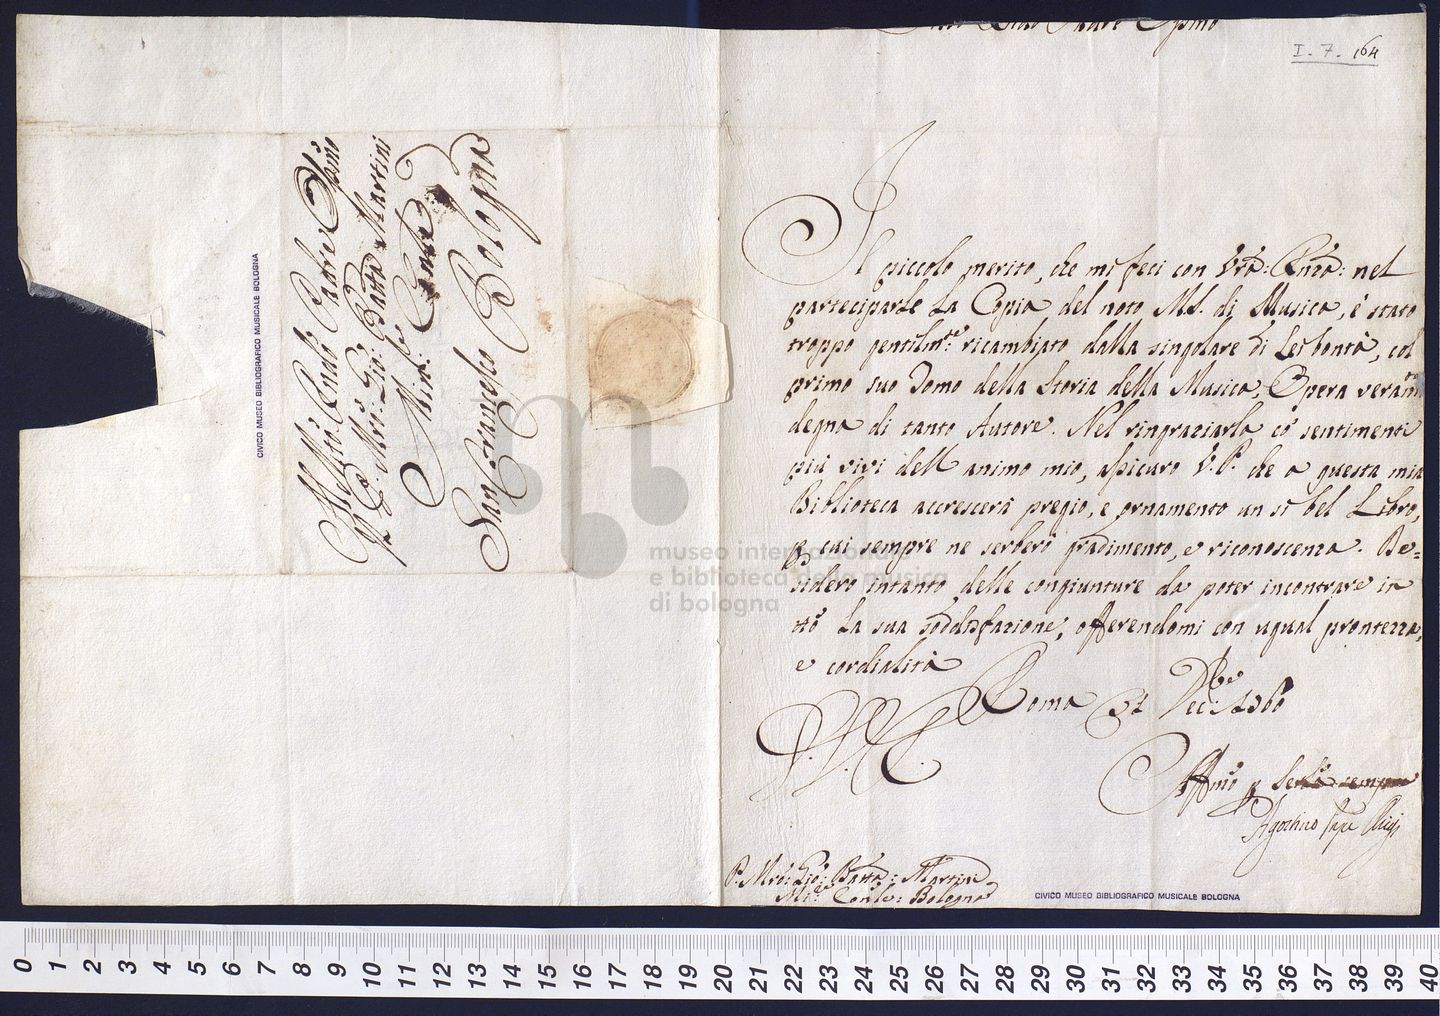 Molto Rndo Padre Ossmo
I. 7. 164
Il piccolo merito, che mi feci con Vrã: Rnzã: nel
participarLe La Copia del noto MS. di Musica, è stato
troppo gentilmte: ricambiato dalla singolare di Lei bontà, col
primo suo Tomo della Storia della Musica, Opera veramte
degna di tanto Autore. Nel ringraziarla cõ sentimenti
più vivi dell' animo mio, assicuro V. P. che a questa mia
Biblioteca accrescerà pregio, e ornamento un sì bel Libro,
p cui sempre ne serberò gradimento, e riconoscenza. De=
sidero intanto delle congiunture da poter incontrare in
ttõ La sua soddisfazione, offerendomi con ugual prontezza,
e cordialità
Roma 31 Xbre 1760
D. V. R.
Affmõ p
Agostino Chigi
P. Mrõ: Giõ: Batta: Martini
Mi: Conle: Bologna
CIVICO MUSEO BIBLIOGRAFICO MUSICALE BOLOGNA
Al Mltõ Rndõ: Padre Ossmo
Il P. Mrõ: Giõ: Batta Martini
Minr: Conle
San Francesco Bologna
CIVICO MUSEO BIBLIOGRAFICO MUSICALE BOLOGNA
museo internazionale
e biblioteca della musica
di bologna
0 1 2 3 4 5 6 7 8 9 10 11 12 13 14 15 16 17 18 19 20 21 22 23 24 25 26 27 28 29 30 31 32 33 34 35 36 37 38 39 40